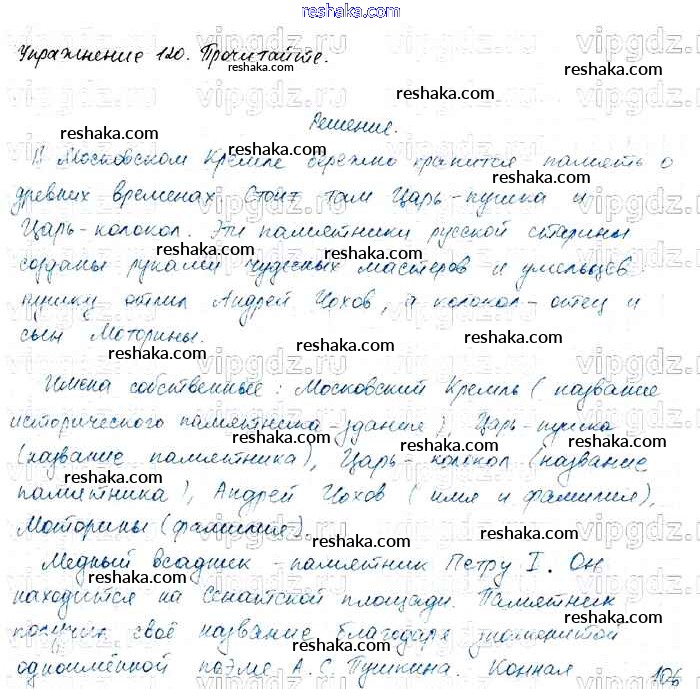 Упражнение 120. Прочитайте.
Решение.
В Московском Кремле бережно хранится память о
древних временах Стоит там Царь-пушка и
Царь-колокол. Эти памятники русской старины
созданы руками чудесных мастеров и умельцев
пушку отлил Андрей Чохов, а колокол-отец и
сын Моторины.
Имена собственные: Московский Кремль (название
исторического памятника-здание), Царь-пушка
(название памятника), Царь-колокол (название
памятника), Андрей Чохов (имя и фамилия),
Моторины (фамилия).
Медный всадник - памятник Петру I. Он
находится на Сенатской площади. Памятник
получил своё название благодаря знаменитой
одноимённой поэме А.С. Пушкина. Конная
106
reshaka.com
vipgdz.ru